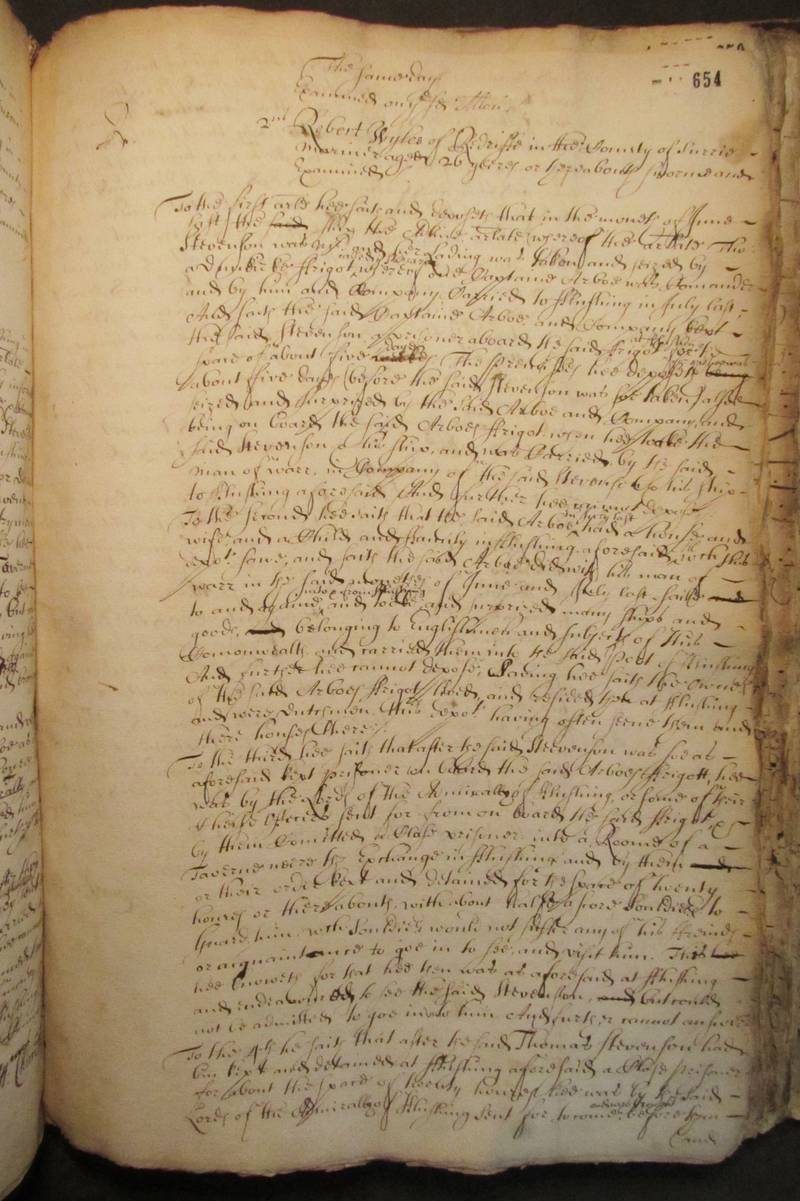 654
The same day
Examined on the said
2nd
Robert Wyles of Redriffe in the County of Surrie
Mariner aged 26 yeeres or thereabouts sworne and
Examined
To the first arle hee saith and deposeth that in the moneth of June
last the said shipp the arlate whereof the arlate Tho:
Stevenson was and her lading was taken and seized by
a dunkirke ffrigot whereof one Captaine Arboe was Comander
and by him and Company Carried to fflushing in July last,
And saith the said Captaine Arboe and Company kept
the said Stevenson a prisoner aboard the said ffrigot
space of about five dayes The premisses hee deposeth
about five dayes before the said Stevenson was soe taken
seized and surprized by the said Arboe and Company, and
being on board the said Arboes ffrigot when hee tooke the
said Stevenson & his shipp, and was Carried by the said
man of warr, in Company of the said Stevenson & his shipp
to fflushing aforesaid And further hee cannot depose
To the second hee saith that the said Arboe had a house and
wife and a Child and ffamily in fflushing aforesaid, which this
depot sawe, and saith the said Arboe did with his man of
warr in the said moneths of June and July last saile
to and againe, and tooke and surprized many shipps and
goods, belonging to Englishmen and subjects of this
Comonwealth and carried them into the said Port of fflushing
And further hee cannot depose, Saving hee saith the owners
of the said Arboes ffrigot lived, and resided at fflushing
and were dutchmen, this depot having often seene them and
there houses there.
To the third hee saith that after the said Stevenson was soe as
aforesaid kept prisoner on board the said Arboes ffrigott, hee
was by the Lords of the Admiralty of fflushing, or some of their
Cheife Officers sent for from on board the said ffrigot
by them Comitted a Close prisoner into a Roome of a
Taverne neere the Exchange in fflushing and by them
or their order kept and detained for the space of twenty
houres or thereabouts, with about halfe a score souldiers to
Guard him, which souldiers would not suffer any of his ffreinds
or acquaintance to goe in to see, and visit him. This
hee knoweth for that hee then was as aforesaid at fflushing
and endeavoured to see the said Stevenson, but could
not be admitted to goe in to him And further cannot answer
To the 4th he saith that after the said Thomas Stevenson had
bin kept and detained at fflushing aforesaid a Close prisoner
for about the space of twenty houres hee was by the said
Lords of the Admiralty of fflushing sent for, to come before them
and